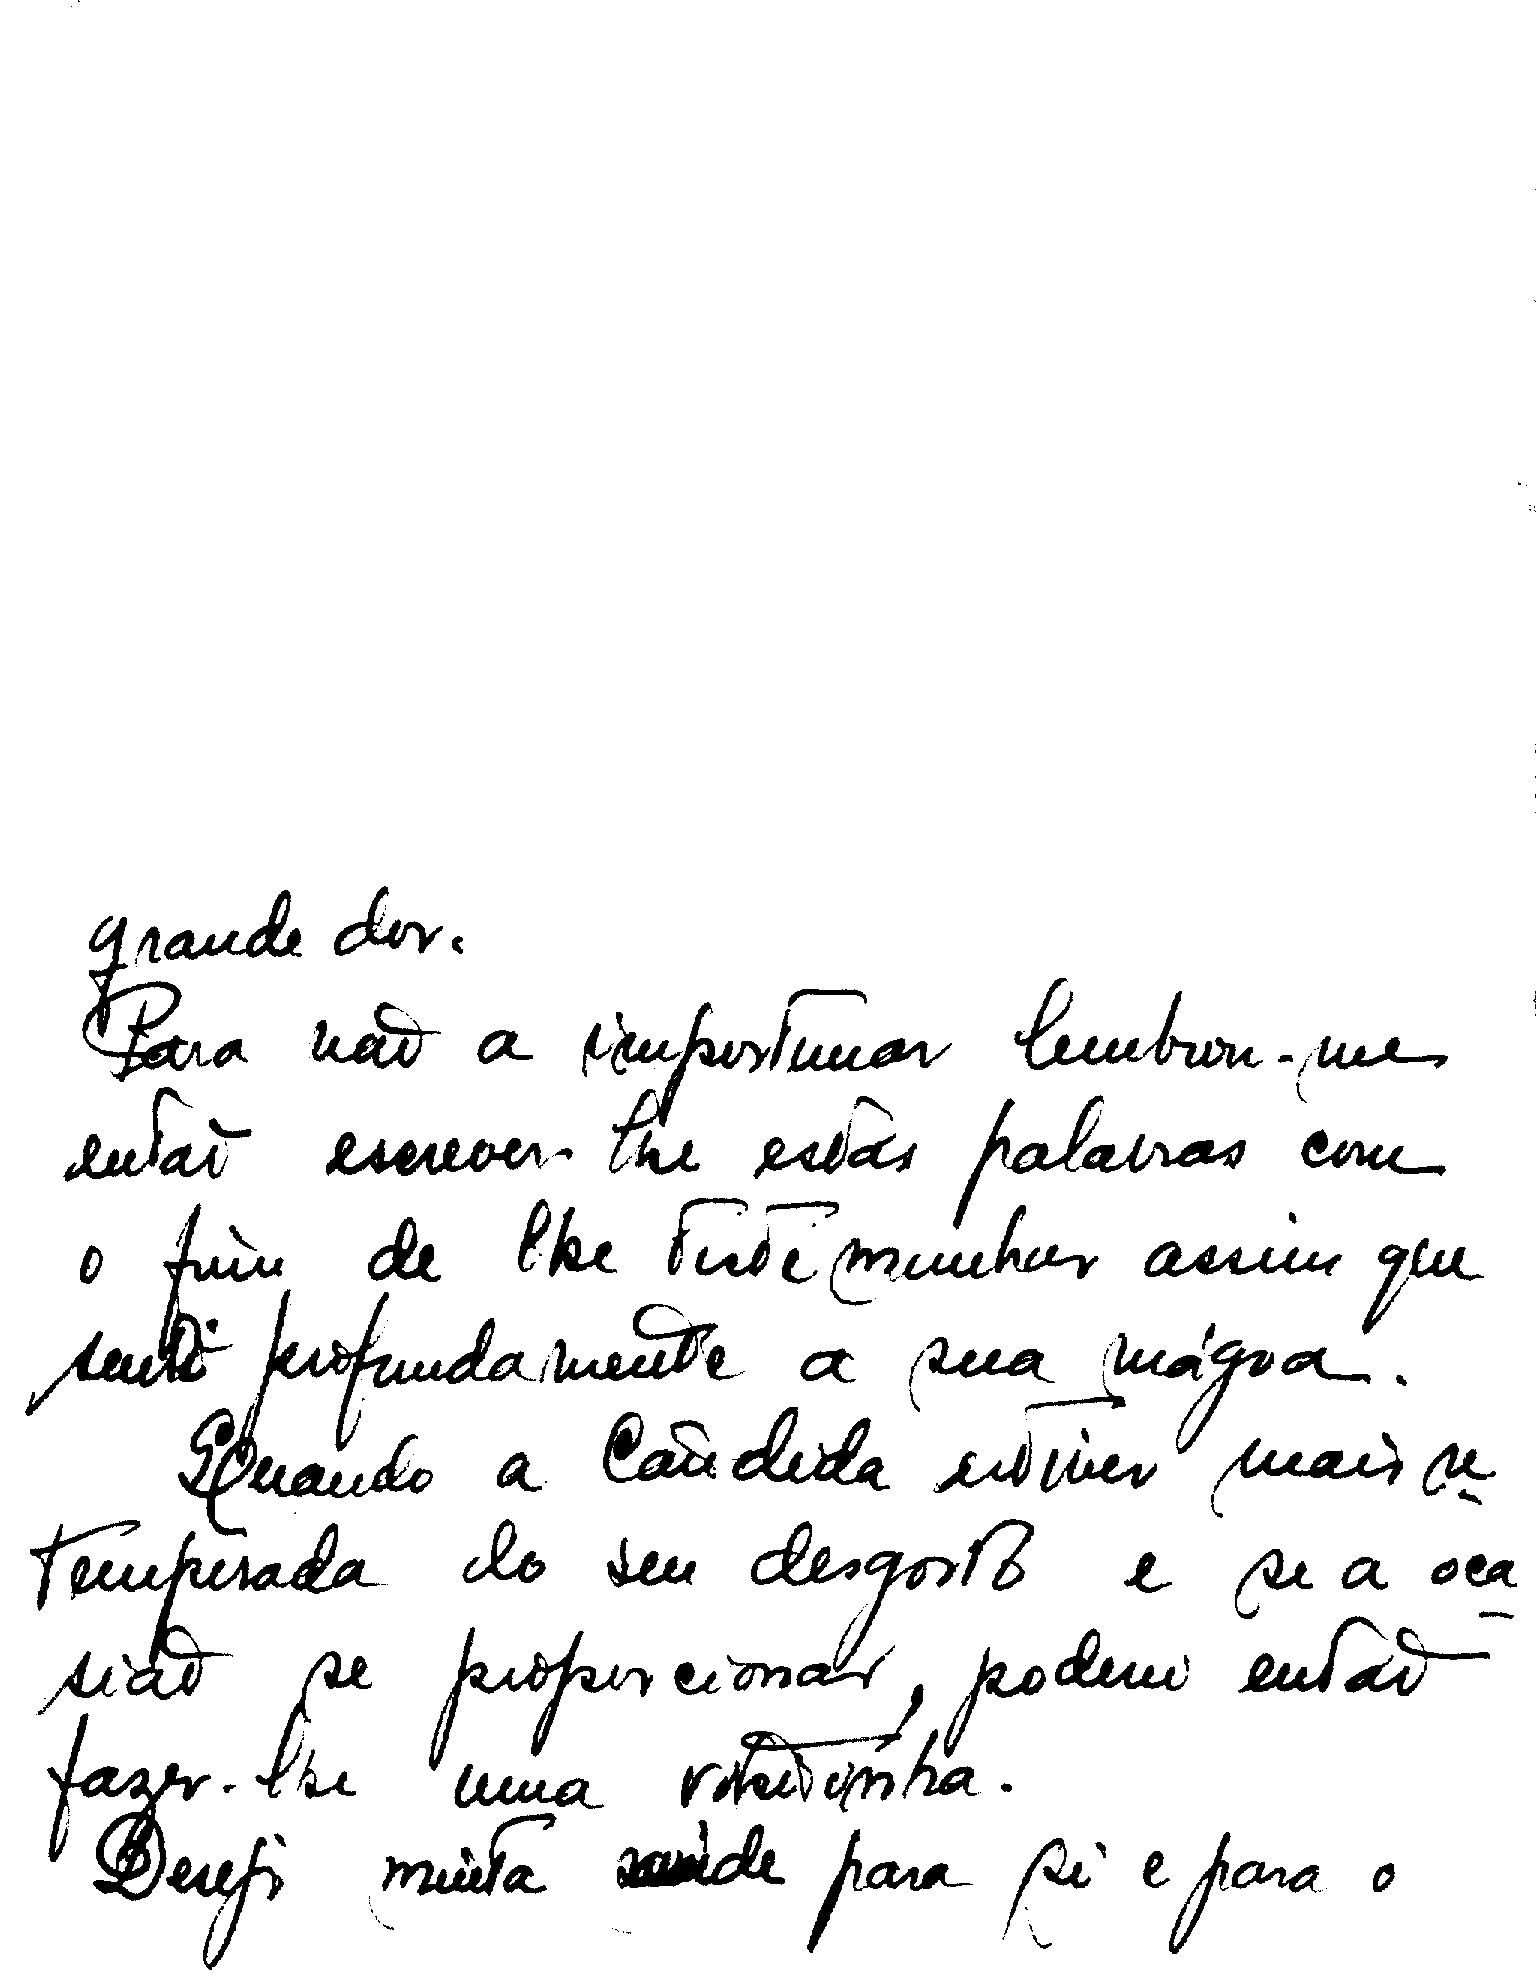 grande dor.
Para não a importunar lembrou-me
então escrever-lhe estas palavras com
o fim de lhe testemunhar assim que
senti profundamente a sua mágoa.
Quando a Cândida estiver mais re-
temperada do seu desgosto e se a oca-
sião se proporcionar, poderei então
fazer-lhe uma visitinha.
Desejo muita saúde para si e para o